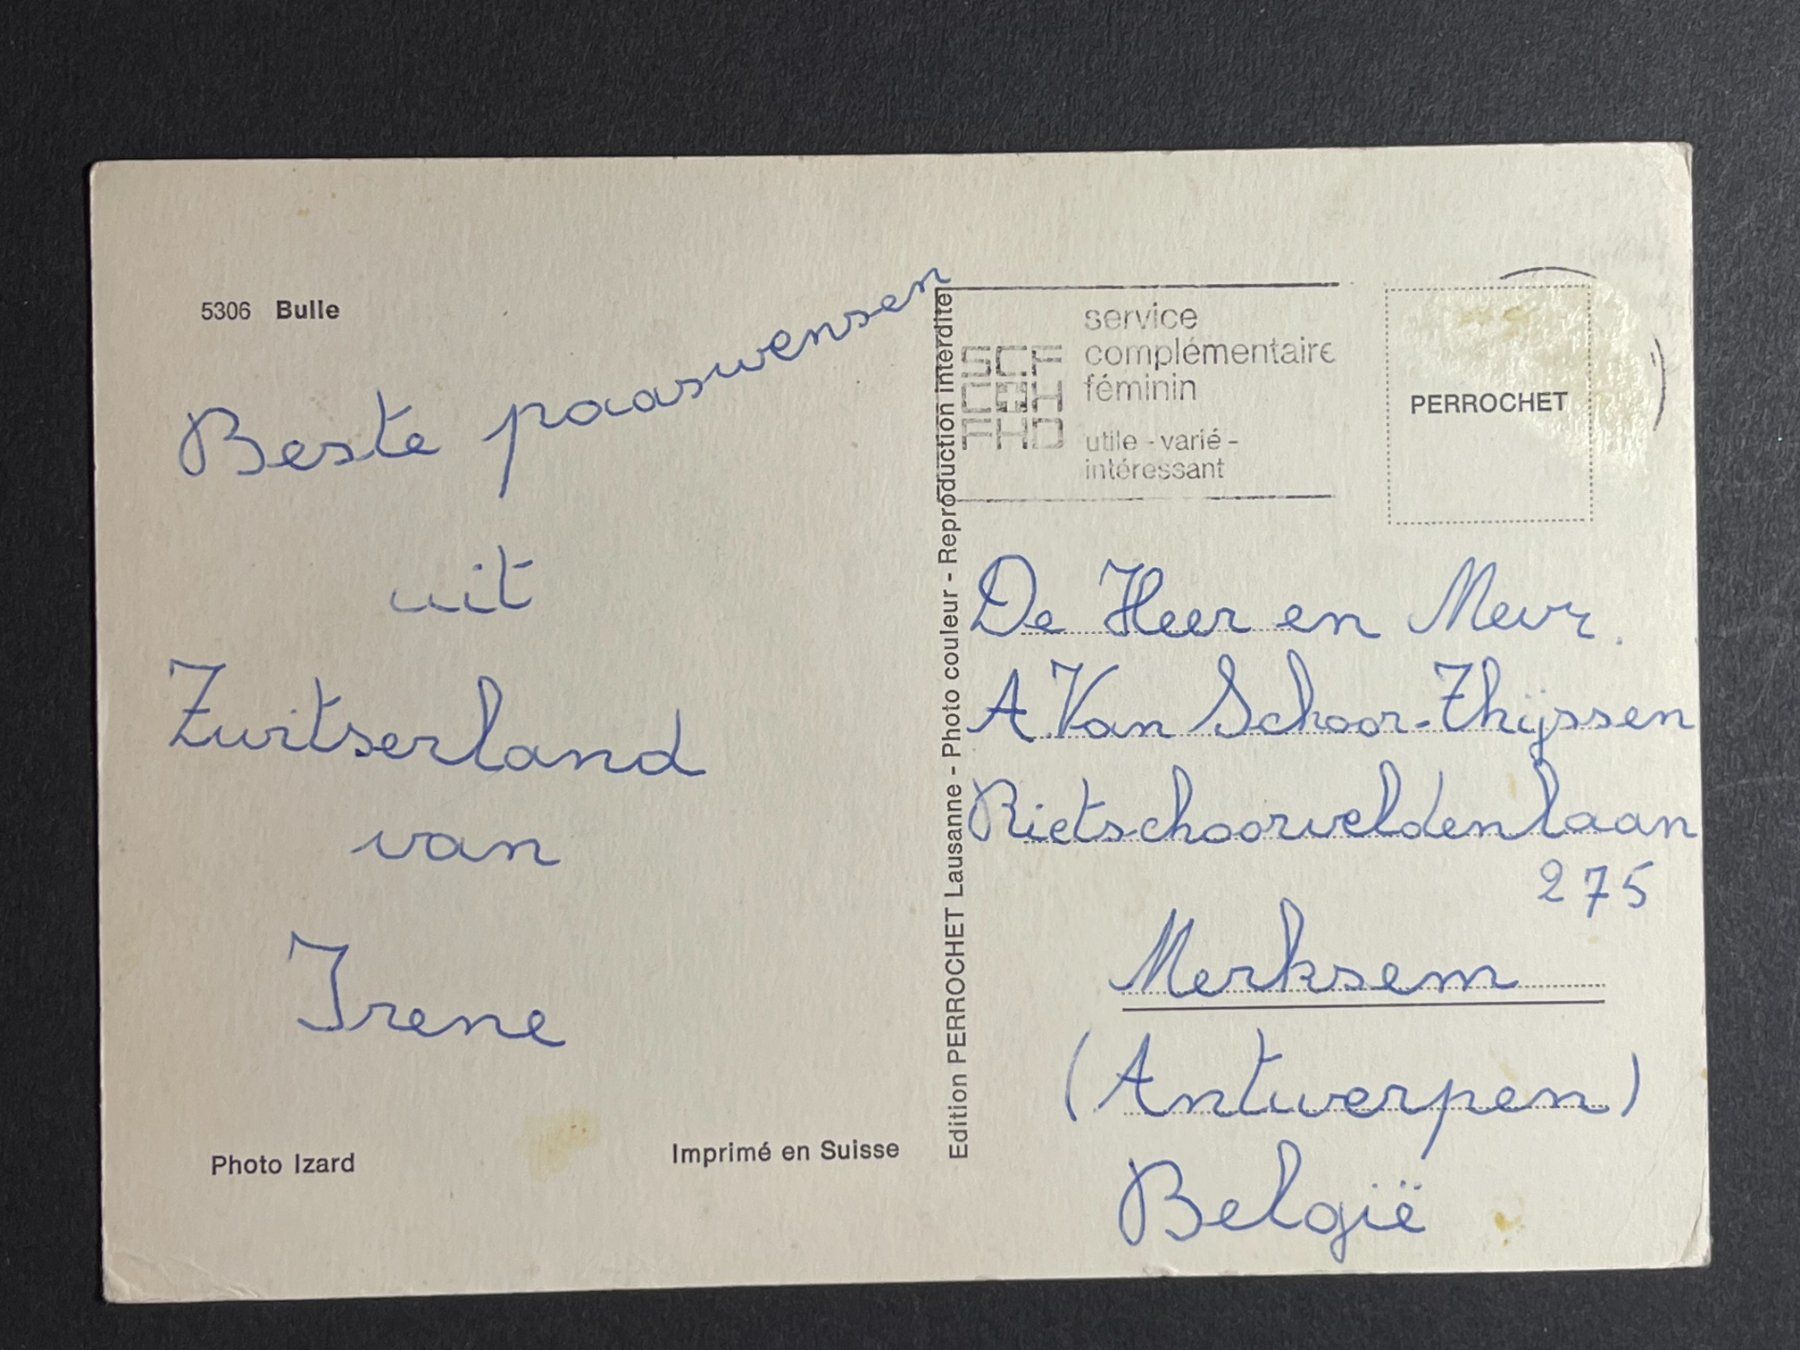 5306 Bulle
Beste paaswensen
uit
Zwitserland
van
Irene
Photo Izard
Imprimé en Suisse
Edition PERROCHET Lausanne - Photo couleur - Reproduction interdite
SCF
CCH
FHD
service
complémentaire
féminin
utile - varié -
intéressant
PERROCHET
De Heer en Mevr.
A Van Schoor-Thijssen
Rietschoorveldenlaan
275
Merksem
(Antwerpen)
België